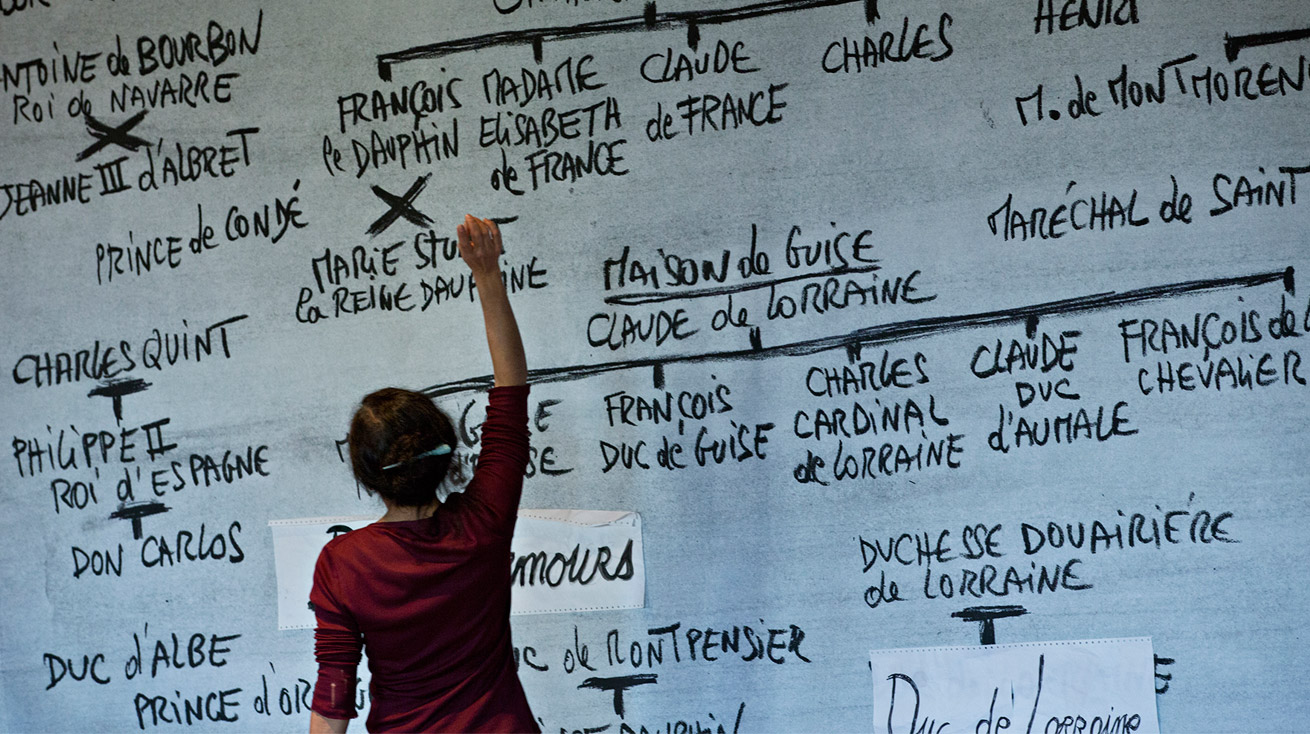 ANTOINE de BOURBON
Roi de NAVARRE
JEANNE III d'ALBRET
PRINCE de CONDÉ
FRANÇOIS
le DAUPHIN
MADAME
ELISABETH
de FRANCE
CLAUDE
de FRANCE
CHARLES
HENRI
M. de MONTMOREN
MARÉCHAL de SAINT
MARIE STU
la REINE DAUPHINE
MAISON de GUISE
CLAUDE de LORRAINE
CHARLES QUINT
PHILIPPE II
ROI d'ESPAGNE
DON CARLOS
FRANÇOIS
DUC de GUISE
CHARLES
CARDINAL
de LORRAINE
CLAUDE
DUC
d'AUMALE
FRANÇOIS de
CHEVALIER
MOURS
DUCHESSE DOUAIRIÉRE
de LORRAINE
Duc de Lorraine
DUC d'ALBE
PRINCE d'OR
de MONTPENSIER
DAUPHIN